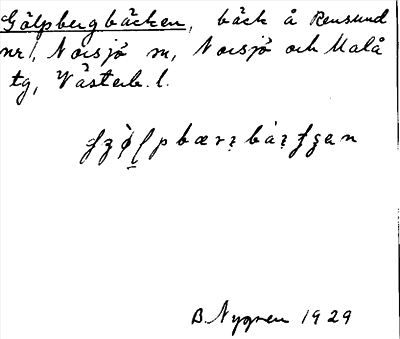 Gölpbergbäcken, bäck å Rensund
nr 1, Norsjö sn, Norsjö och Malå
tg, Västerb. l.
B. Nygren 1929